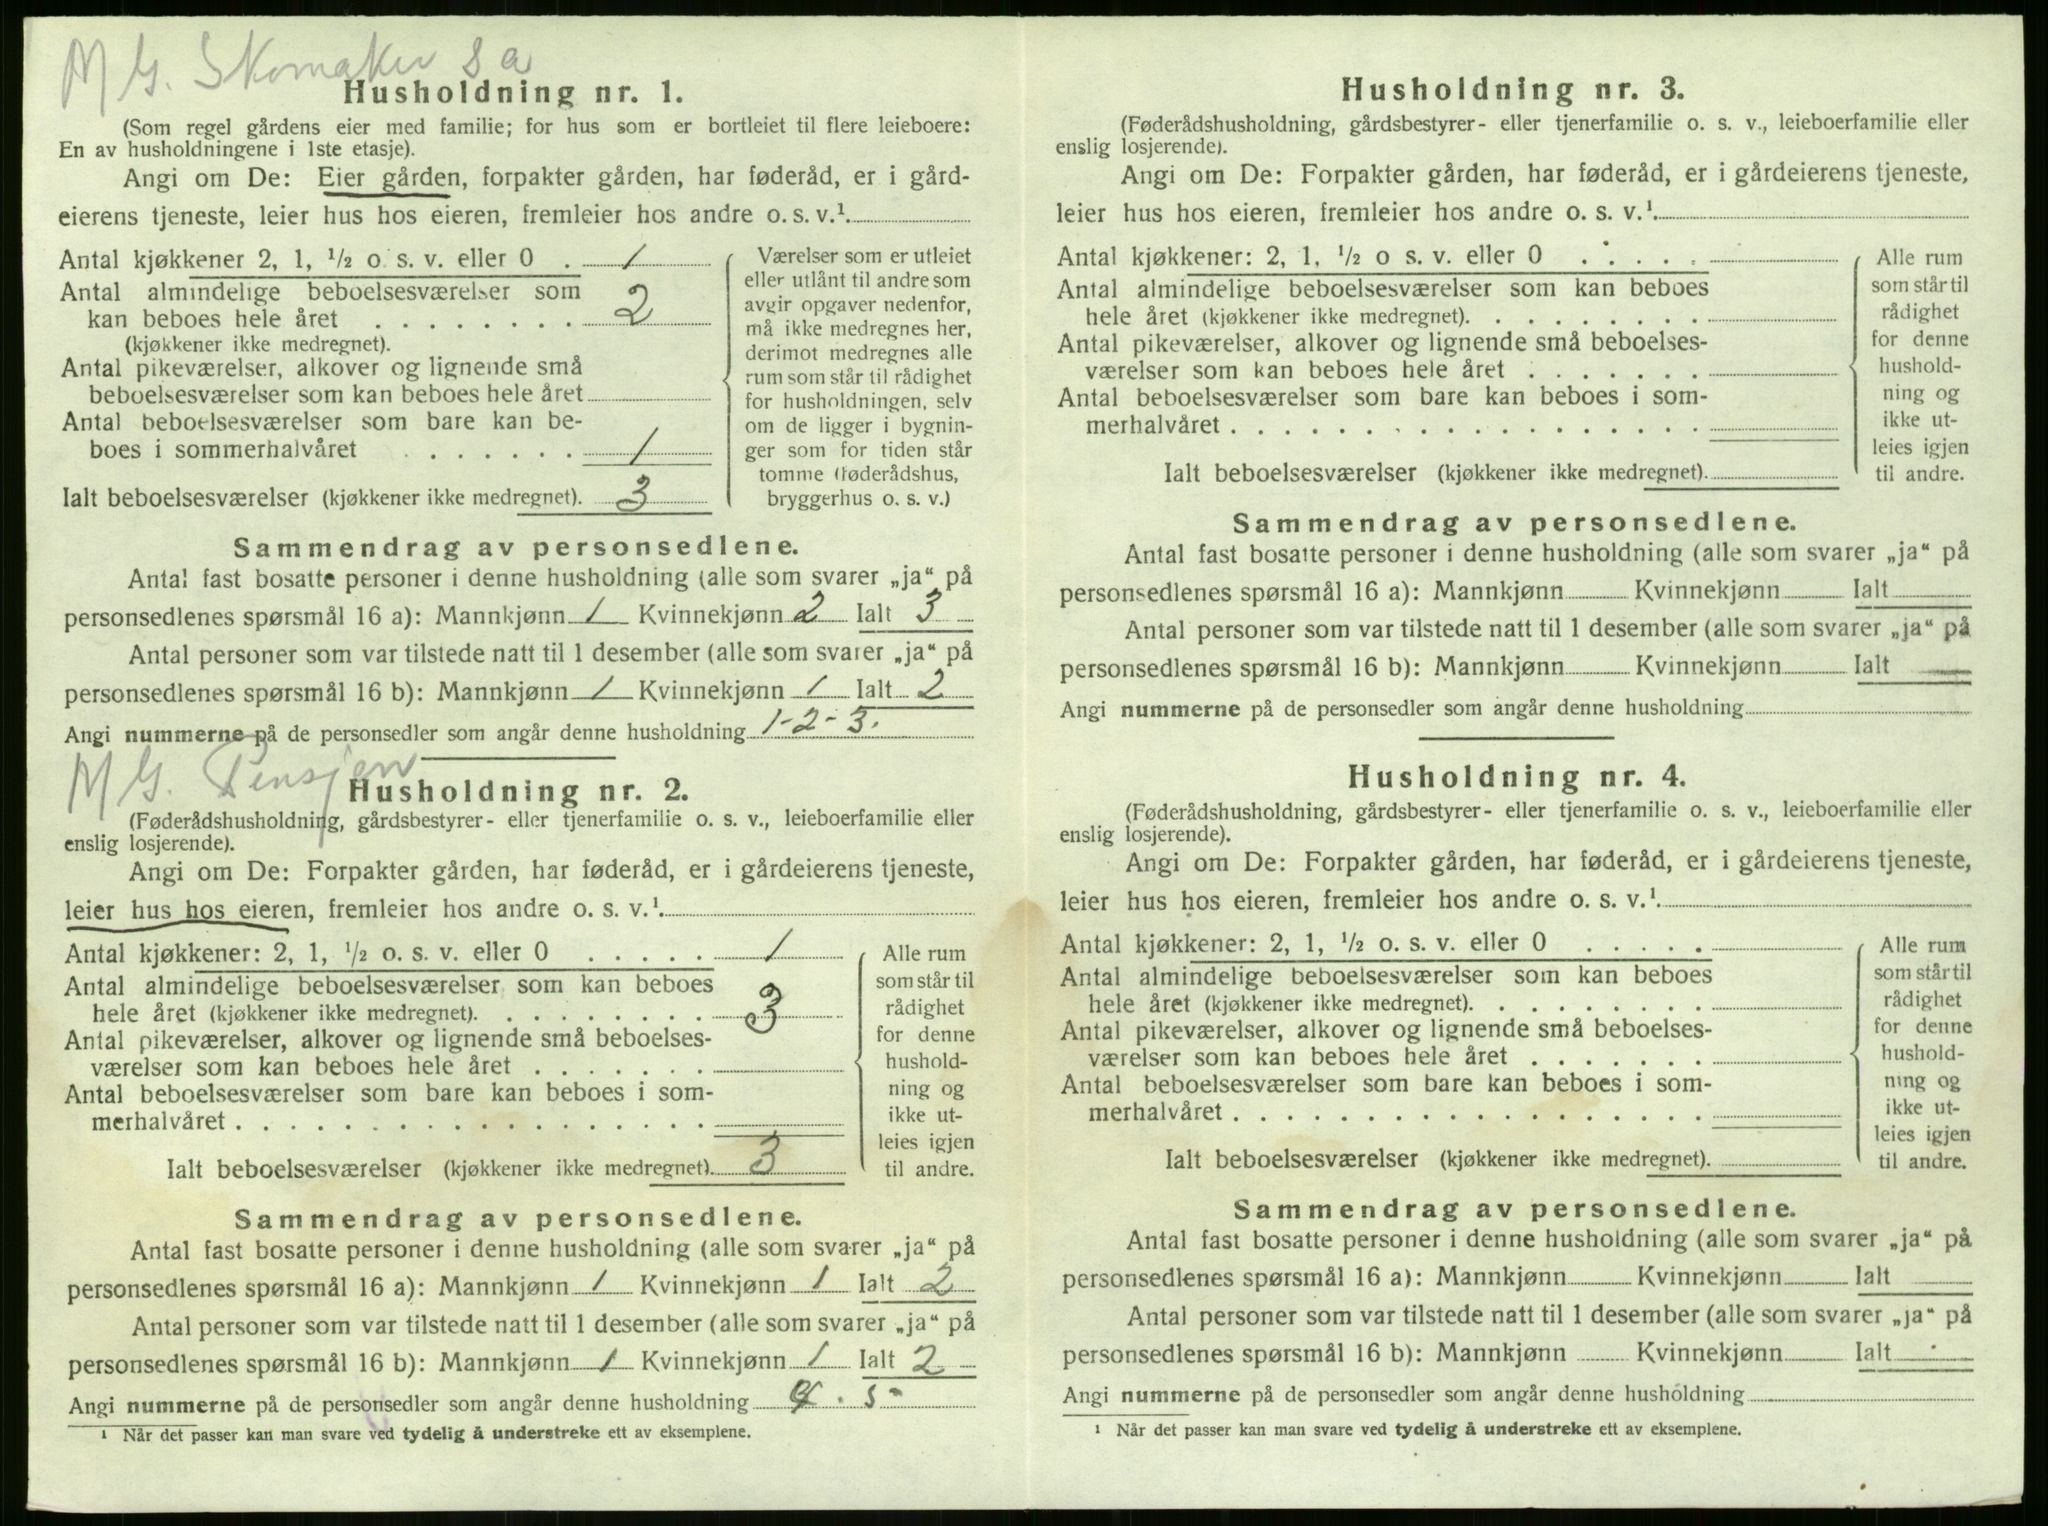 M G. Skomaker 8 a
Husholdning nr. 1.
(Som regel gårdens eier med familie; for hus som er bortleiet til flere leieboere:
En av husholdningene i 1ste etasje).
Angi om De: Eier gården, forpakter gården, har føderåd, er i gård-
eierens tjeneste, leier hus hos eieren, fremleier hos andre o. s. v.¹
Antal kjøkkener 2, 1, ½ o. s. v. eller 0 . 1
Antal almindelige beboelsesværelser som
kan beboes hele året . . . . . . . . 2
(kjøkkener ikke medregnet).
Antal pikeværelser, alkover og lignende små
beboelsesværelser som kan beboes hele året
Antal beboelsesværelser som bare kan be-
boes i sommerhalvåret . . . . . . 1
Ialt beboelsesværelser (kjøkkener ikke medregnet). 3
Værelser som er utleiet
eller utlånt til andre som
avgir opgaver nedenfor,
må ikke medregnes her,
derimot medregnes alle
rum som står til rådighet
for husholdningen, selv
om de ligger i bygnin-
ger som for tiden står
tomme (føderådshus,
bryggerhus o. s. v.)
Sammendrag av personsedlene.
Antal fast bosatte personer i denne husholdning (alle som svarer „ja“ på
personsedlenes spørsmål 16 a): Mannkjønn 1 Kvinnekjønn 2 Ialt 3
Antal personer som var tilstede natt til 1 desember (alle som svarer „ja“ på
personsedlenes spørsmål 16 b): Mannkjønn 1 Kvinnekjønn 1 Ialt 2
Angi nummerne på de personsedler som angår denne husholdning 1-2-3.
M G. Pensjon
Husholdning nr. 2.
(Føderådshusholdning, gårdsbestyrer- eller tjenerfamilie o. s. v., leieboerfamilie eller
enslig losjerende).
Angi om De: Forpakter gården, har føderåd, er i gårdeierens tjeneste,
leier hus hos eieren, fremleier hos andre o. s. v.¹
Antal kjøkkener: 2, 1, ½ o. s. v. eller 0 . . . . . 1
Antal almindelige beboelsesværelser som kan beboes
hele året (kjøkkener ikke medregnet). . . . . . . . . 3
Antal pikeværelser, alkover og lignende små beboelses-
værelser som kan beboes hele året . . . . . . .
Antal beboelsesværelser som bare kan beboes i som-
merhalvåret . . . . . . . . . . . . . . . . . .
Ialt beboelsesværelser (kjøkkener ikke medregnet). 3
Alle rum
som står til
rådighet
for denne
hushold-
ning og
ikke ut-
leies igjen
til andre.
Sammendrag av personsedlene.
Antal fast bosatte personer i denne husholdning (alle som svarer „ja“ på
personsedlenes spørsmål 16 a): Mannkjønn 1 Kvinnekjønn 1 Ialt 2
Antal personer som var tilstede natt til 1 desember (alle som svarer „ja“ på
personsedlenes spørsmål 16 b): Mannkjønn 1 Kvinnekjønn 1 Ialt 2
Angi nummerne på de personsedler som angår denne husholdning 4. 5-
¹ Når det passer kan man svare ved tydelig å understreke ett av eksemplene.
Husholdning nr. 3.
(Føderådshusholdning, gårdsbestyrer- eller tjenerfamilie o. s. v., leieboerfamilie eller
enslig losjerende).
Angi om De: Forpakter gården, har føderåd, er i gårdeierens tjeneste,
leier hus hos eieren, fremleier hos andre o. s. v.¹
Antal kjøkkener: 2, 1, ½ o s. v. eller 0 . . . . .
Antal almindelige beboelsesværelser som kan beboes
hele året (kjøkkener ikke medregnet). . . . . . . . .
Antal pikeværelser, alkover og lignende små beboelses-
værelser som kan beboes hele året . . . . . . .
Antal beboelsesværelser som bare kan beboes i som-
merhalvåret . . . . . . . . . . . . . . . . . .
Ialt beboelsesværelser (kjøkkener ikke medregnet).
Alle rum
som står til
rådighet
for denne
hushold-
ning og
ikke ut-
leies igjen
til andre.
Sammendrag av personsedlene.
Antal fast bosatte personer i denne husholdning (alle som svarer „ja“ på
personsedlenes spørsmål 16 a): Mannkjønn Kvinnekjønn Ialt
Antal personer som var tilstede natt til 1 desember (alle som svarer „ja“ på
personsedlenes spørsmål 16 b): Mannkjønn Kvinnekjønn Ialt
Angi nummerne på de personsedler som angår denne husholdning
Husholdning nr. 4.
(Føderådshusholdning, gårdsbestyrer- eller tjenerfamilie o. s. v., leieboerfamilie eller
enslig losjerende).
Angi om De: Forpakter gården, har føderåd, er i gårdeierens tjeneste,
leier hus hos eieren, fremleier hos andre o. s. v.¹
Antal kjøkkener: 2, 1, ½ o. s. v. eller 0 . . . . .
Antal almindelige beboelsesværelser som kan beboes
hele året (kjøkkener ikke medregnet). . . . . . . . .
Antal pikeværelser, alkover og lignende små beboelses-
værelser som kan beboes hele året . . . . . . .
Antal beboelsesværelser som bare kan beboes i som-
merhalvåret . . . . . . . . . . . . . . . . . .
Ialt beboelsesværelser (kjøkkener ikke medregnet).
Alle rum
som står til
rådighet
for denne
hushold-
ning og
ikke ut-
leies igjen
til andre.
Sammendrag av personsedlene.
Antal fast bosatte personer i denne husholdning (alle som svarer „ja“ på
personsedlenes spørsmål 16 a): Mannkjønn Kvinnekjønn Ialt
Antal personer som var tilstede natt til 1 desember (alle som svarer „ja“ på
personsedlenes spørsmål 16 b): Mannkjønn Kvinnekjønn Ialt
Angi nummerne på de personsedler som angår denne husholdning
¹ Når det passer kan man svare ved tydelig å understreke ett av eksemplene.